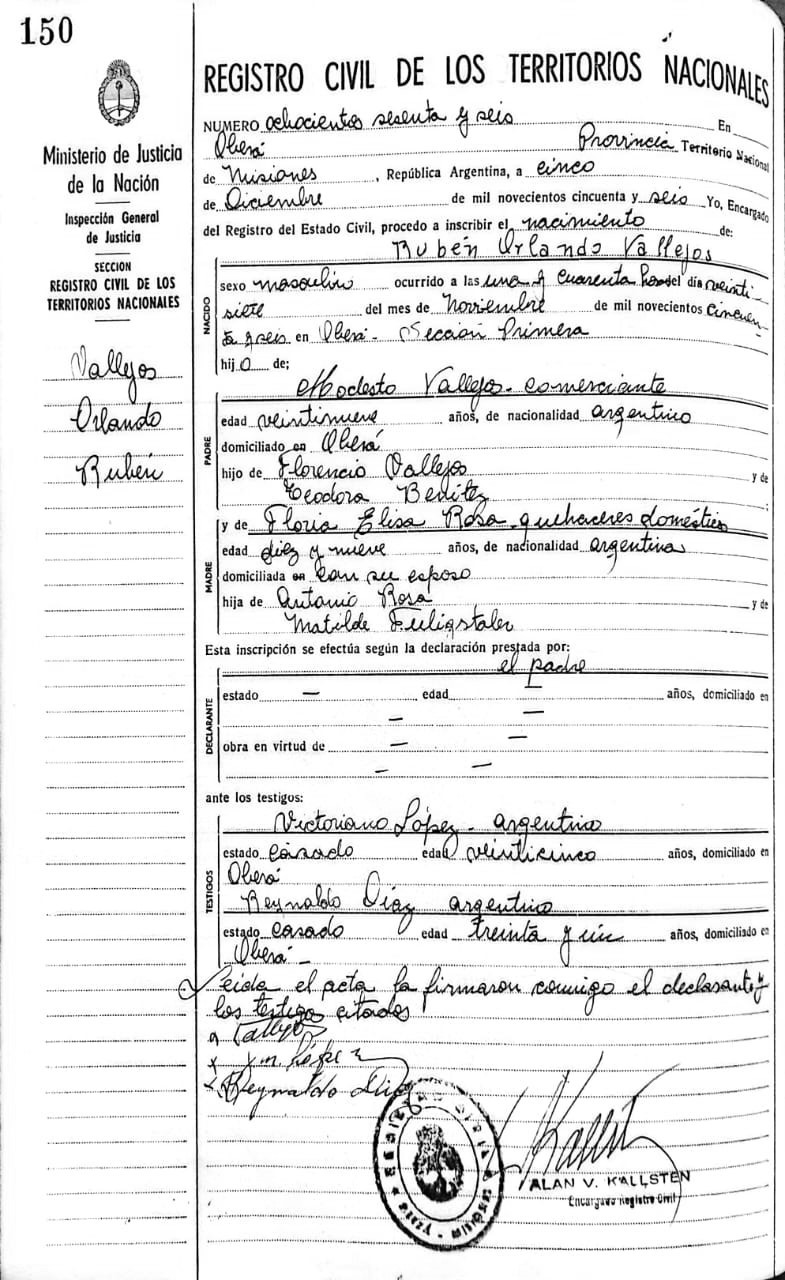 150
Ministerio de Justicia
de la Nación
Inspección General
de Justicia
SECCION
REGISTRO CIVIL DE LOS
TERRITORIOS NACIONALES
Vallejos
Orlando
Rubén
REGISTRO CIVIL DE LOS TERRITORIOS NACIONALES
NUMERO ochocientos sesenta y seis En
Oberá Provincia Territorio Nacional
de Misiones, República Argentina, a cinco
de Diciembre de mil novecientos cincuenta y seis Yo, Encargado
del Registro del Estado Civil, procedo a inscribir el nacimiento de:
Rubén Orlando Vallejos
NACIDO
sexo masculino ocurrido a las una y cuarenta horas del día veinti-
siete del mes de Noviembre de mil novecientos cincuen
ta y seis en Oberá - Sección Primera
hijo de;
Modesto Vallejos - comerciante
PADRE
edad veintinueve años, de nacionalidad argentino
domiciliado en Oberá
hijo de Florencio Vallejos y de
Teodora Benítez
MADRE
y de Floria Elisa Rosa - quehaceres domésticos
edad diez y nueve años, de nacionalidad argentina
domiciliada en con su esposo
hija de Antonio Rosa y de
Matilde
Esta inscripción se efectúa según la declaración prestada por:
el padre
DECLARANTE
estado — edad — años, domiciliado en
— —
obra en virtud de — —
— —
ante los testigos:
TESTIGOS
Victoriano López - argentino
estado casado edad veinticinco años, domiciliado en
Oberá
Reynaldo Díaz argentino
estado casado edad treinta y un años, domiciliado en
Oberá -
Leída el acta la firmaron conmigo el declarante y
los testigo citados
Vallejos
López
Reynaldo Díaz
Kallsten
ALAN V. KALLSTEN
Encargado Registro Civil